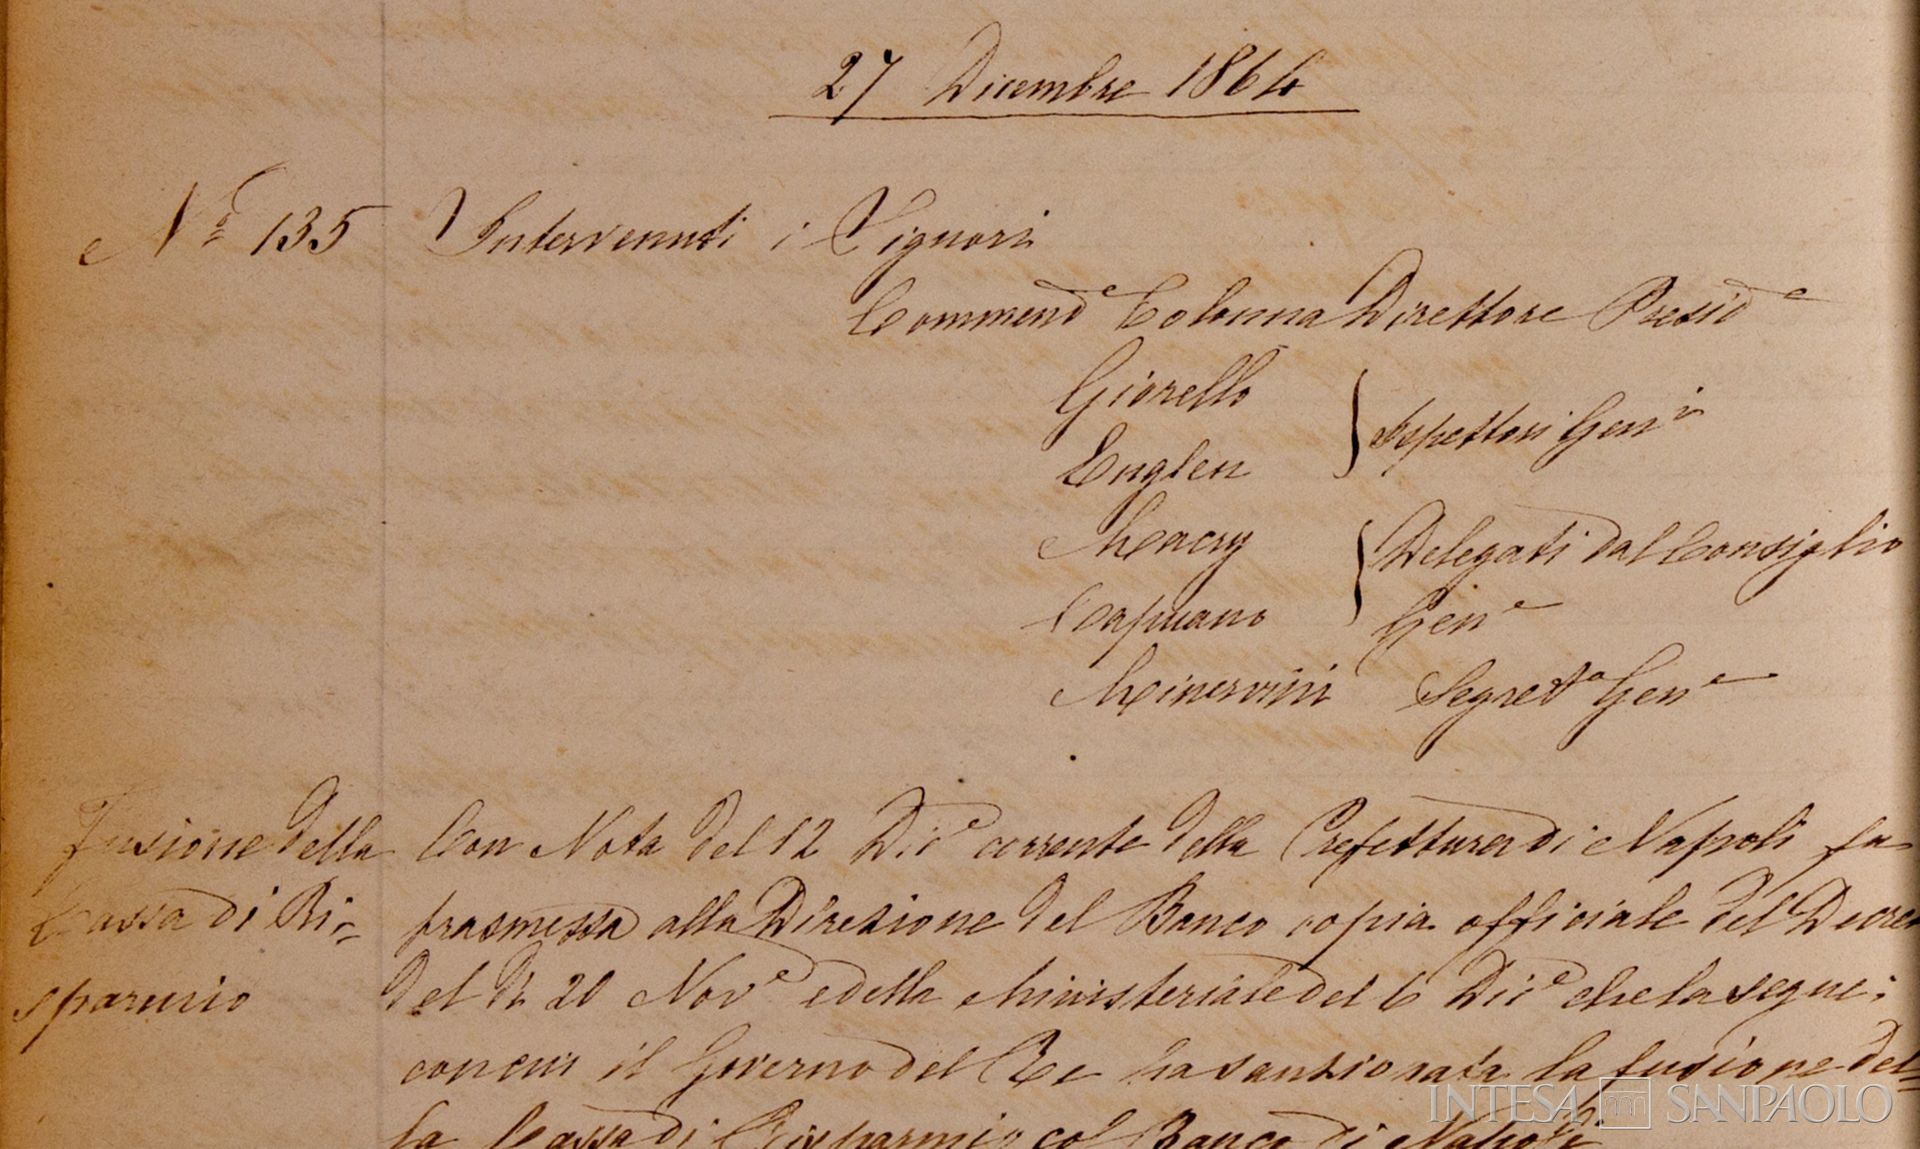 27 Dicembre 1864
Nº 135 Intervenuti i Signori
Commend.e Colonna Direttore Presid.e
Giorello
Englen
} Ispettori Gen.i
Macry
Capuano
} Delegati dal Consiglio
Gen.e
Minervini Segret.o Gen.e
Fusione della
Cassa di Ri=
sparmio
Con Nota del 12 Dic.e corrente della Prefettura di Napoli fu
trasmessa alla Direzione del Banco copia officiale del Decreto
del 20 Nov.e e della Ministeriale del 6 Dic.e che la segue;
con cui il Governo del Re ha sanzionata la fusione del=
la Cassa di Risparmio col Banco di Napoli.
INTESA SANPAOLO